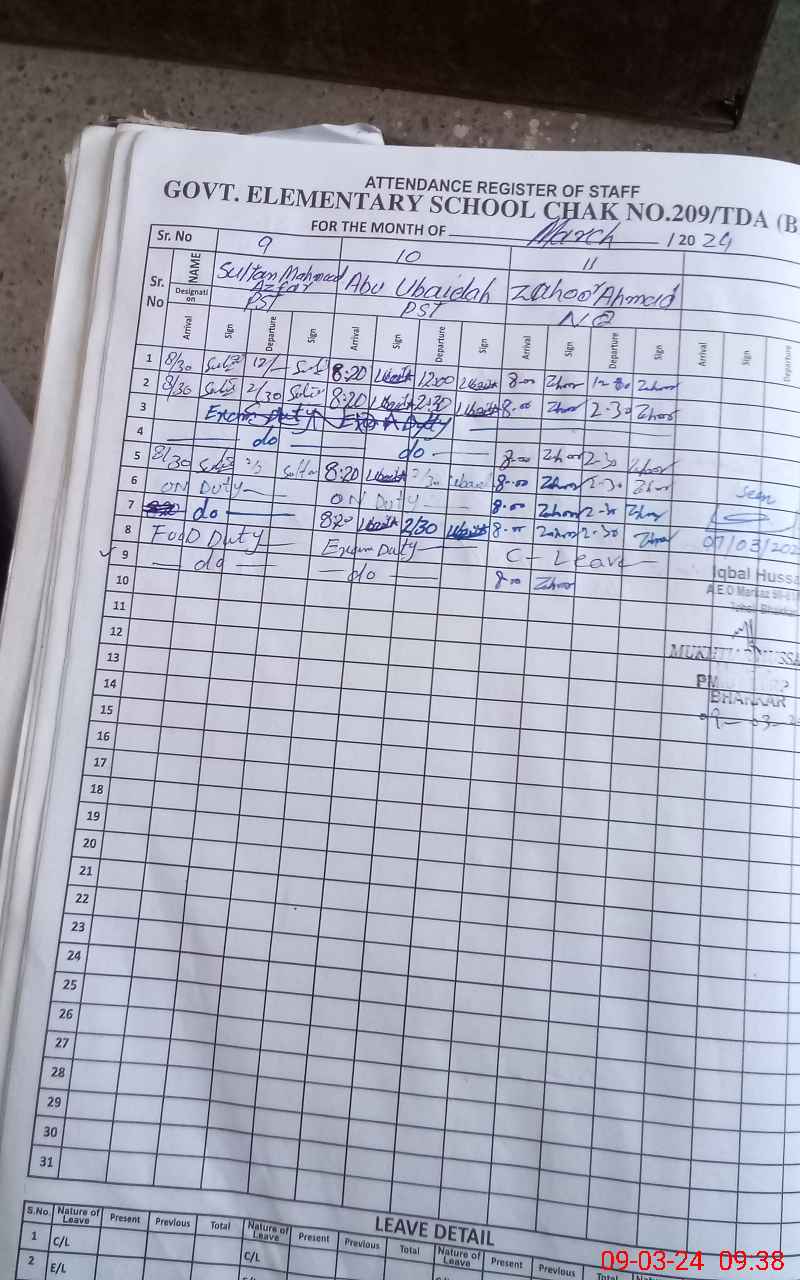 ATTENDANCE REGISTER OF STAFF
GOVT. ELEMENTARY SCHOOL CHAK NO.209/TDA (B
FOR THE MONTH OF March /2024
Sr. No 9 10 11
Sr. No NAME Sultan Mahmood Azfar Abu Ubaidah Zahoor Ahmad
Designation PST PST NQ
Arrival Sign Departure Sign Arrival Sign Departure Sign Arrival Sign Departure Sign Arrival Sign Departure
1 8/30 12/ 8:20 Ubaid 12:00 Ubaid 8-00 Zahoor 12-00 Zahoor
2 8/30 2/30 8:20 Ubaid 2:30 Ubaid 8-00 Zahoor 2-30 Zahoor
3 Exam Duty Duty
4 do do 8-00 Zahoor 2-30 Zahoor
5 8/30 8:20 Ubaid 2/30 Ubaid 8-00 Zahoor 2-30 Zahoor
6 ON Duty ON Duty 8-00 Zahoor 2-30 Zahoor
7 do 8:20 Ubaid 2/30 Ubaid 8-00 Zahoor 2-30 Zahoor
8 Food Duty Exam Duty C-Leave
9 do do 8-00 Zahoor
10
11
12
13
14
15
16
17
18
19
20
21
22
23
24
25
26
27
28
29
30
31
Seen
07/03/202
Iqbal Hussa
A.E.O Markaz
MUKHT HUSSA
BHAKKAR
09-03-2
LEAVE DETAIL
S.No. Nature of Leave Present Previous Total Nature of Leave Present Previous Total Nature of Leave Present Previous Total
1 C/L C/L C/L
2 E/L
09-03-24 09.38